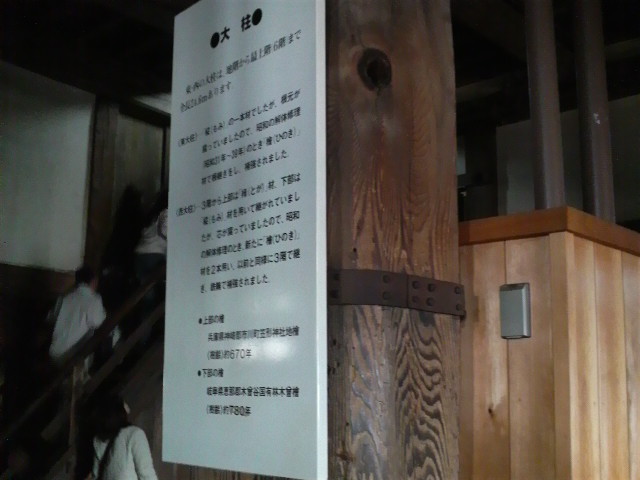 ●大 柱●
東・西の大柱は、地階から最上階(6階)まで
全長24.6mあります
(東大柱)…「樅(もみ)」の一本材でしたが、根元が
腐っていましたので、昭和の解体修理
(昭和31年～39年)のとき「檜(ひのき)」
材で根継ぎをし、補強されました。
(西大柱)…3階から上部は「栂(とが)」材、下部は
「樅(もみ)」材を用いて継がれていまし
たが、芯が腐っていましたので、昭和
の解体修理のとき、新たに「檜(ひのき)」
材を2本用い、以前と同様に3階で継
ぎ、鉄輪で補強されました。
●上部の檜
兵庫県神崎郡市川町笠形神社境
(樹齢)約670年
●下部の檜
岐阜県恵那郡木曾谷国有林木曾檜
(樹齢)約780年